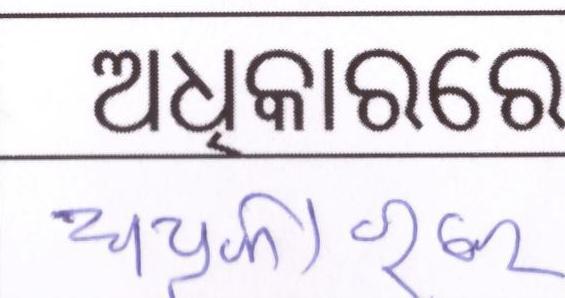 ଅଧିକାରରେ
ଅଧିକାରରେ